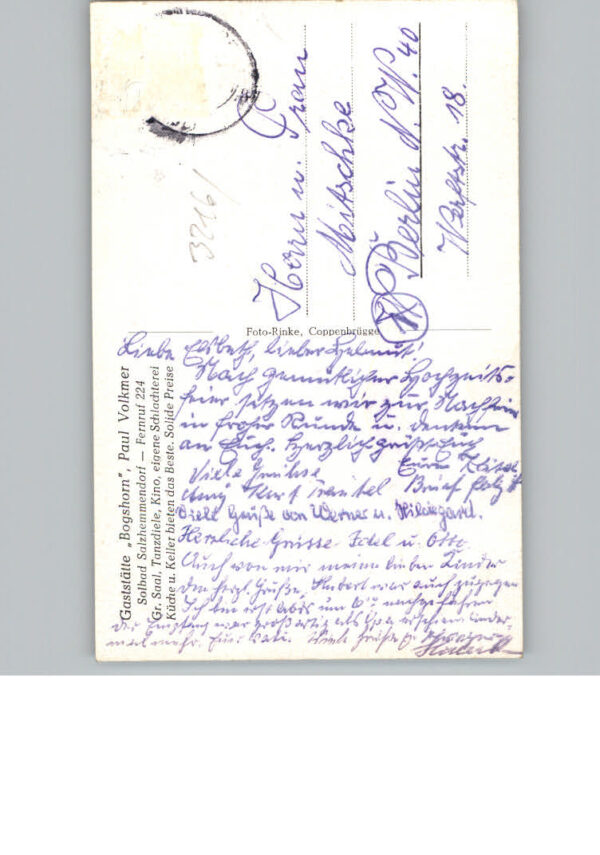 3216/
Herrn u. Frau
Mitschke
Berlin N.W. 40
Werftstr. 18.
Foto-Rinke, Coppenbrügge
Gaststätte „Bogshorn", Paul Volkmer
Solbad Salzhemmendorf — Fernruf 224
Gr. Saal, Tanzdiele, Kino, eigene Schlachterei
Küche u. Keller bieten das Beste. Solide Preise
Liebe Elsbeth, lieber Helmut!
Nach gemütlicher Hochzeits-
feier sitzen wir zur Nachfeier
in froher Runde u. denken
an Euch. Herzlich grüßt Euch
Viele Grüße Eure
Kurt Brief folgt
Viele Grüße von Werner u. Hildegard.
Herzliche Grüsse u. Otto
Auch von mir meine lieben Kinder
Grüße, Hubert war auch zugegen
Ich bin erst
der Empfang war großartig
mehr. Euer